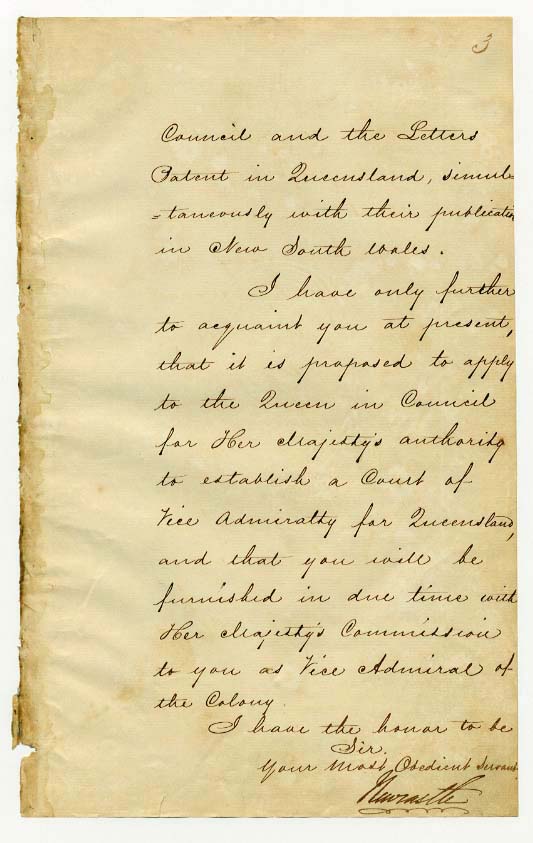 3
Council and the Letters
Patent in Queensland, simul=
=taneously with their publication
in New South Wales.
I have only further
to acquaint you at present,
that it is proposed to apply
to the Queen in Council
for Her Majesty's authority
to establish a Court of
Vice Admiralty for Queensland,
and that you will be
furnished in due time with
Her Majesty's Commission
to you as Vice Admiral of
the Colony.
I have the honor to be
Sir.
Your Most Obedient Servant
Newcastle